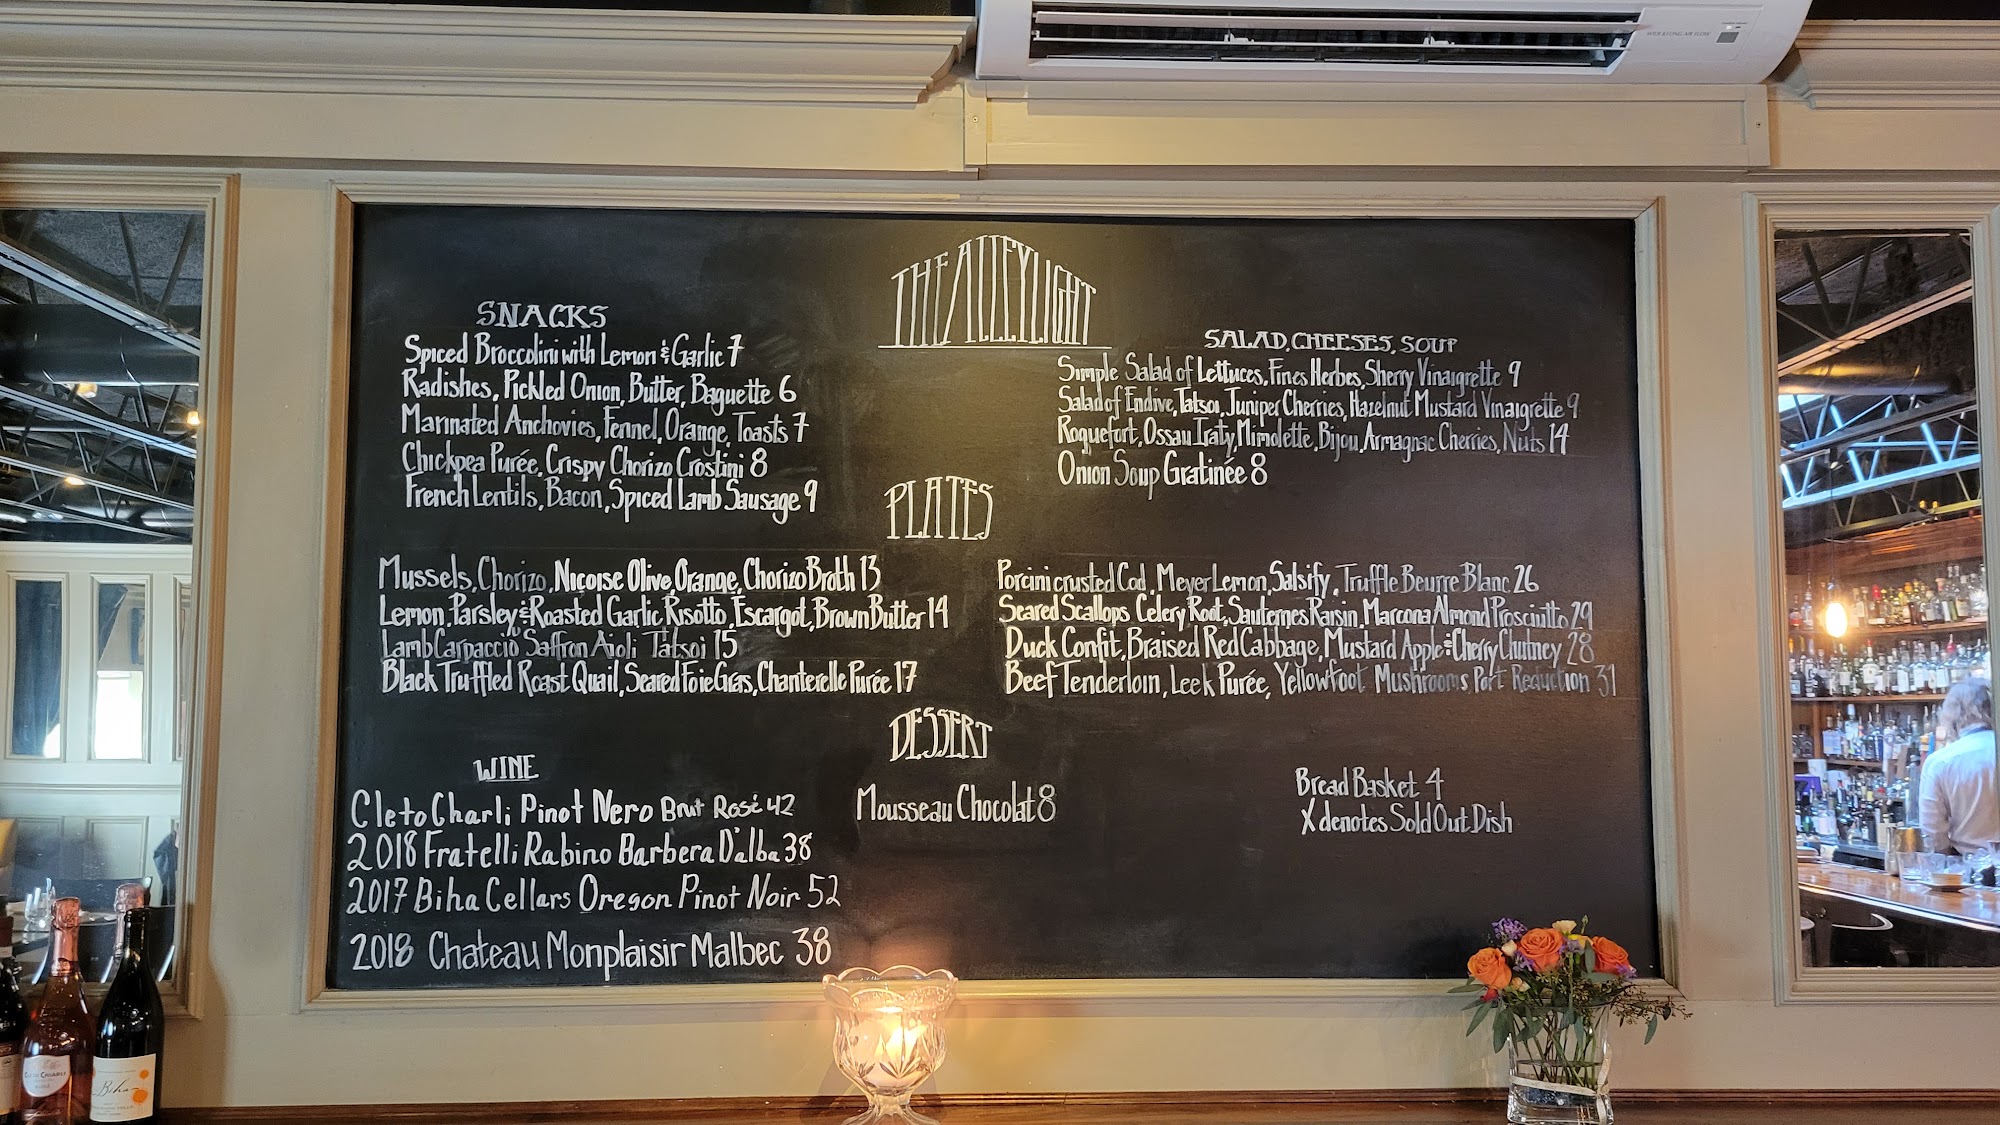 THE ALLEYLIGHT
SNACKS
Spiced Broccolini with Lemon & Garlic 7
Radishes, Pickled Onion, Butter, Baguette 6
Marinated Anchovies, Fennel, Orange, Toasts 7
Chickpea Purée, Crispy Chorizo Crostini 8
French Lentils, Bacon, Spiced Lamb Sausage 9
SALAD, CHEESES, SOUP
Simple Salad of Lettuces, Fines Herbes, Sherry Vinaigrette 9
Salad of Endive, Tatsoi, Juniper Cherries, Hazelnut Mustard Vinaigrette 9
Roquefort, Ossau Iraty, Mimolette, Bijou, Armagnac Cherries, Nuts 14
Onion Soup Gratinée 8
PLATES
Mussels, Chorizo, Niçoise Olive, Orange, Chorizo Broth 13
Lemon, Parsley & Roasted Garlic Risotto, Escargot, Brown Butter 14
Lamb Carpaccio Saffron Aioli Tatsoi 15
Black Truffled Roast Quail, Seared Foie Gras, Chanterelle Purée 17
Porcini crusted Cod, Meyer Lemon, Salsify, Truffle Beurre Blanc 26
Seared Scallops Celery Root, Sauternes Raisin, Marcona Almond Prosciutto 29
Duck Confit, Braised Red Cabbage, Mustard Apple & Cherry Chutney 28
Beef Tenderloin, Leek Purée, Yellowfoot Mushrooms Port Reduction 31
DESSERT
Mousseau Chocolat 8
WINE
Cleto Charli Pinot Nero Brut Rosé 42
2018 Fratelli Rabino Barbera D'alba 38
2017 Biha Cellars Oregon Pinot Noir 52
2018 Chateau Monplaisir Malbec 38
Bread Basket 4
X denotes Sold Out Dish
Biha